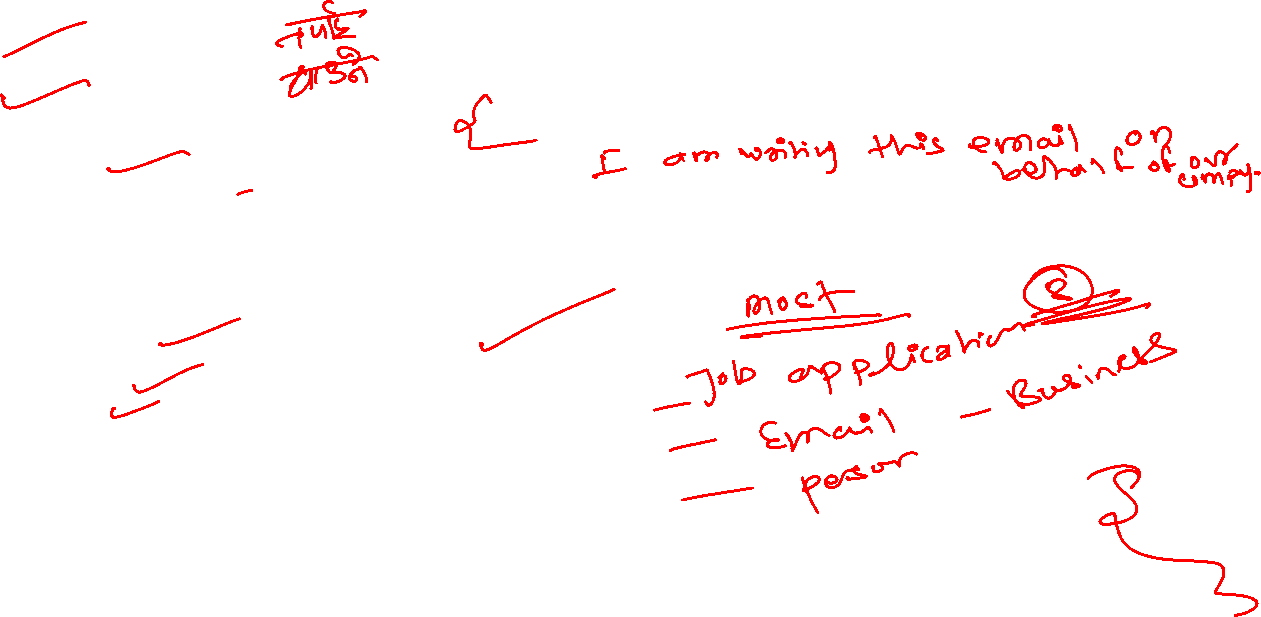 I am writing this email on
behalf of our
compy.
most
Job application
Email - Business
person